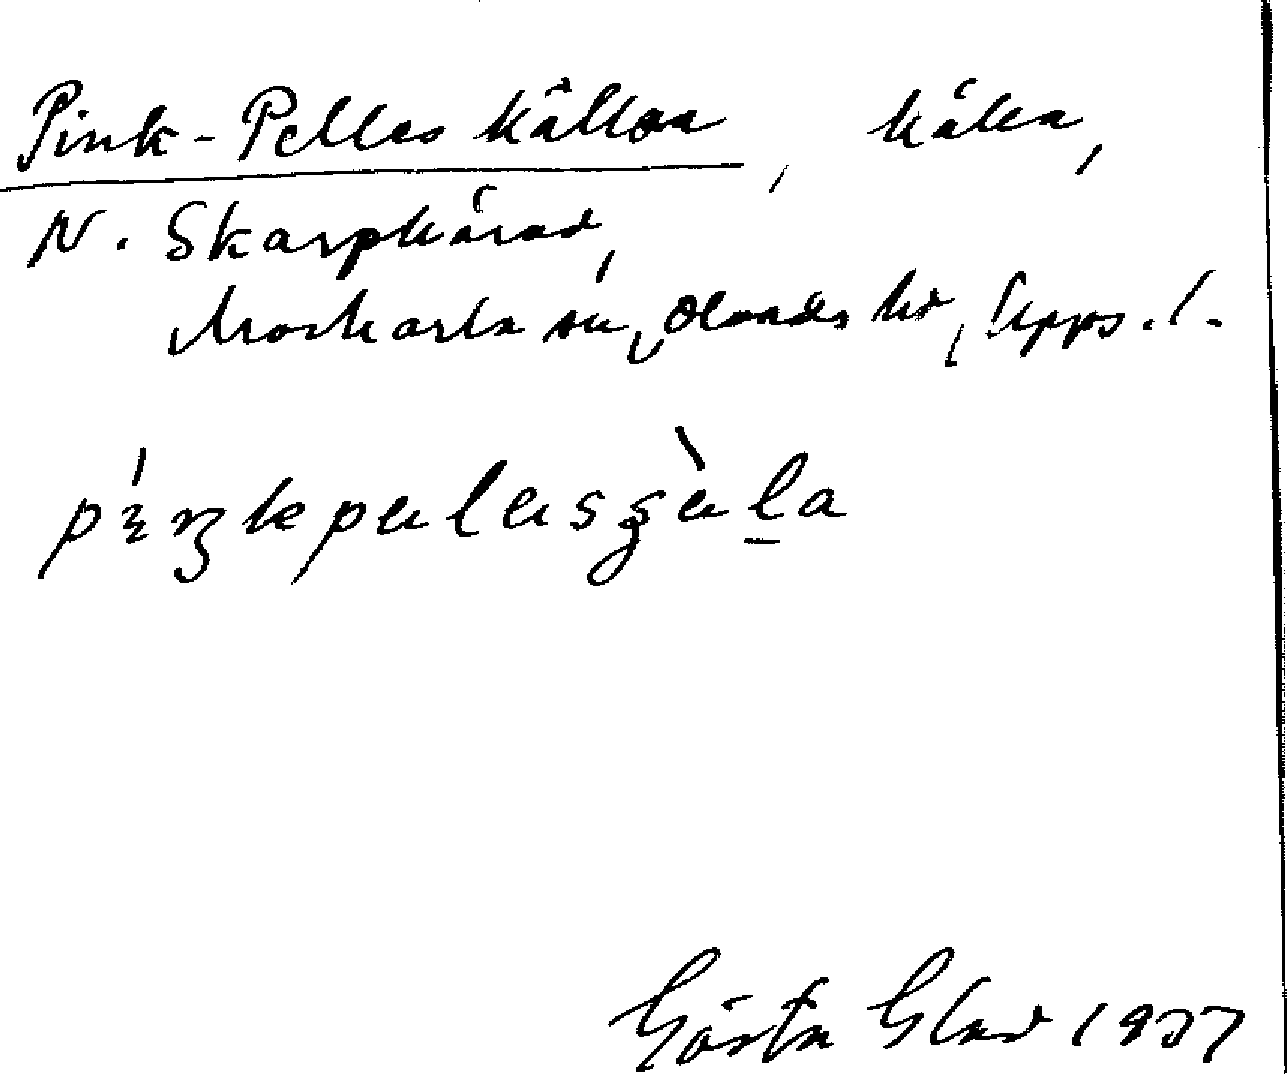 Pink-Pelles källan, källa,
N. Skarpkärad,
Morkarla sn, Olands hd, Upps. l.
Gösta Glad 1937